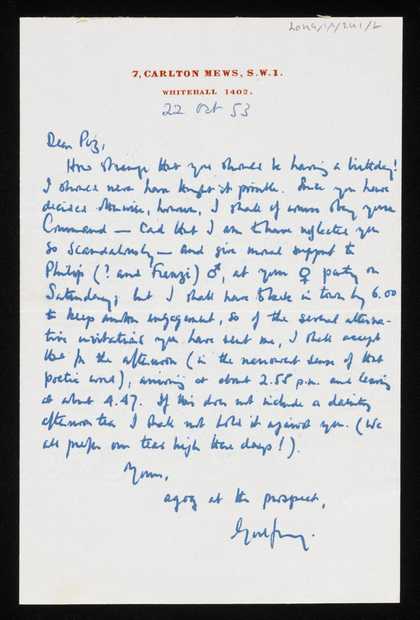 7, CARLTON MEWS, S.W.1.
WHITEHALL 1402.
22 Oct 53
Dear Piz,
How strange that you should be having a birthday!
I should never have thought it possible. Since you have
decided otherwise, however, I shall of course obey your
Command — Cad that I am to have neglected you
so scandalously — and give moral support to
Philip (? and Franzi) ♂, at your ♀ party on
Saturday; but I shall have to be in town by 6.00
to keep another engagement, so of the several alterna-
tive invitations you have sent me, I shall accept
that for the afternoon (in the narrowest sense of that
poetic word), arriving at about 2.58 p.m. and leaving
at about 4.47. If this does not include a dainty
afternoon tea I shall not hold it against you. (We
all prefer our teas high these days!).
Yours,
agog at the prospect,
Godfrey.